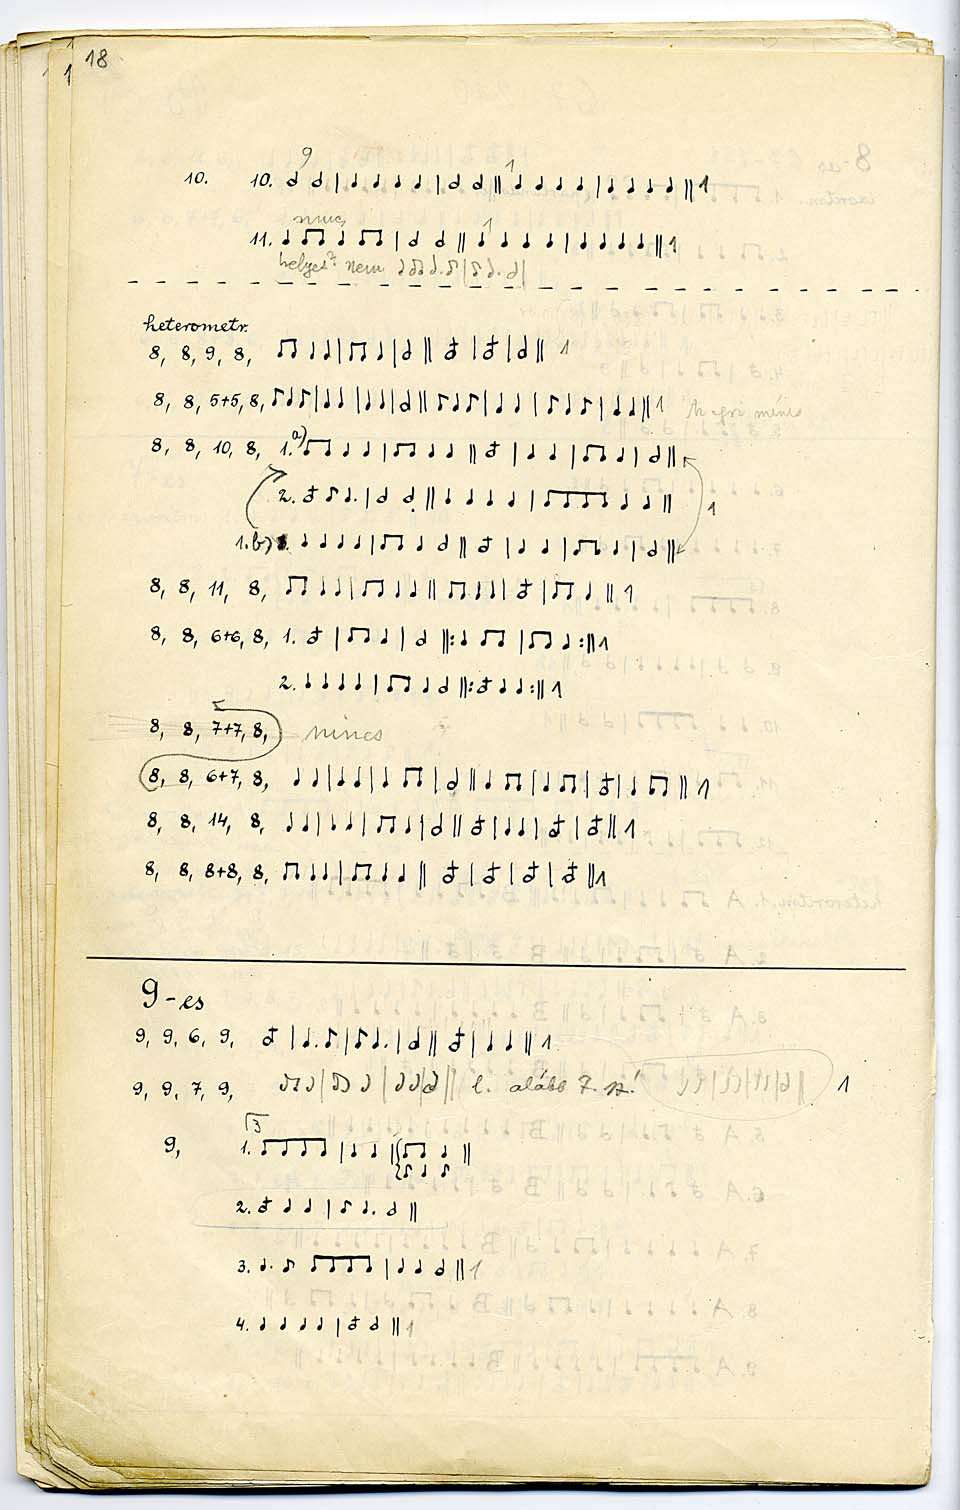 18
9
10. 10. 1 1
nincs 1
11. 1
helyes? nem
heterometr.
8, 8, 9, 8, 1
8, 8, 5+5, 8, 1
8, 8, 10, 8, 1. a)
2. 1
1. b)
8, 8, 11, 8, 1
8, 8, 6+6, 8, 1. 1
2. 1
8, 8, 7+7, 8, nincs
8, 8, 6+7, 8, 1
8, 8, 14, 8, 1
8, 8, 8+8, 8, 1
9-es
9, 9, 6, 9, 1
9, 9, 7, 9, l. alább 7. sz.! 1
3
9, 1.
2.
3. 1
4. 1